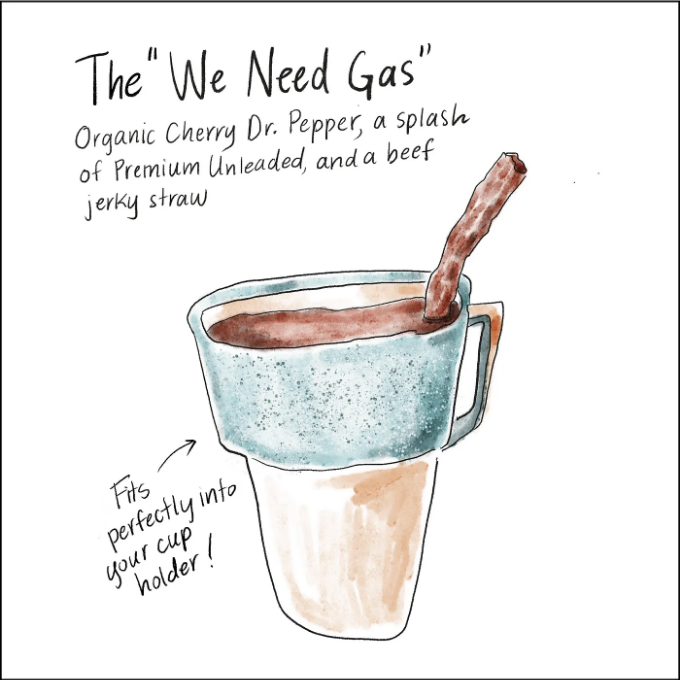 The "We Need Gas"
Organic Cherry Dr. Pepper, a splash
of Premium Unleaded, and a beef
jerky straw
Fits
perfectly into
your cup
holder!